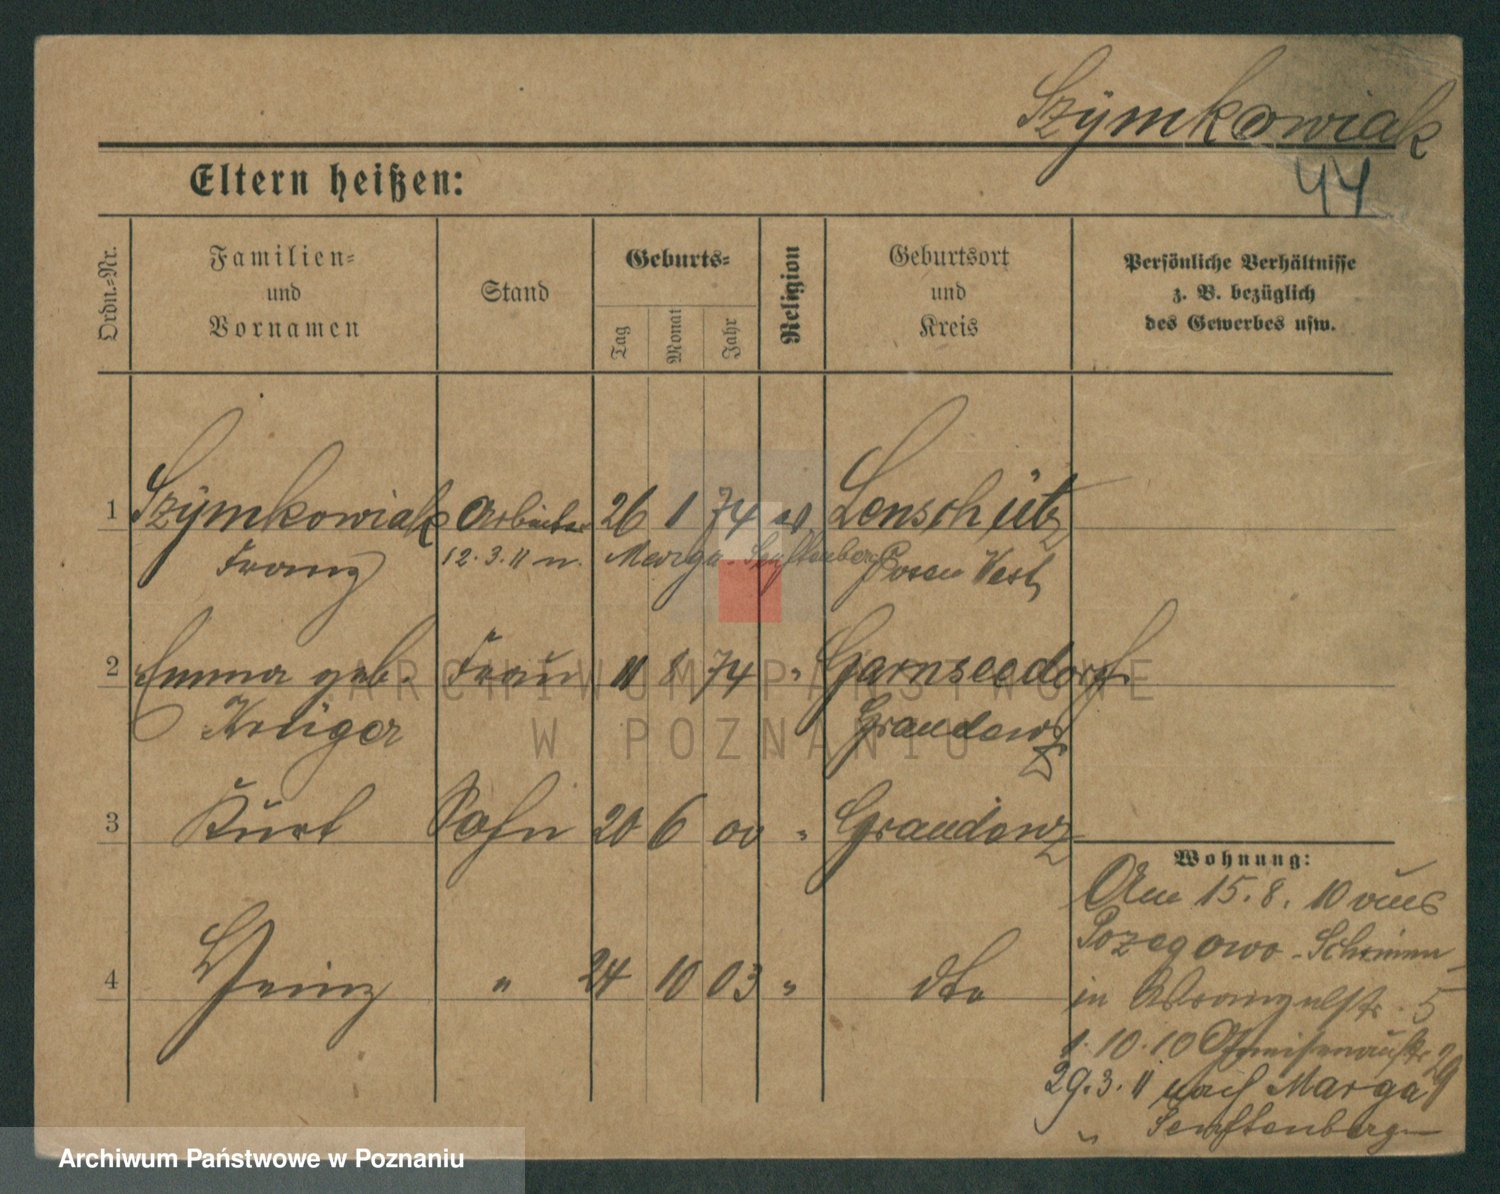 Szymkowiak
44
Eltern heißen:
Ordn.-Nr.
Familien-
und
Vornamen
Stand
Geburts-
Tag
Monat
Jahr
Religion
Geburtsort
und
Kreis
Persönliche Verhältnisse
z. B. bezüglich
des Gewerbes usw.
1 Szymkowiak Arbeiter 26 1 74 ev Lenschütz
Franz 12.3.11 n. Marga-Senftenberg Posen West
2 Emma geb. Frau 11 8 74 " Garnseedorf
Krüger Graudenz
3 Kurt Sohn 20 6 00 " Graudenz
4 Heinz " 24 10 03 " dto
Wohnung:
Am 15.8.10 aus
Pozegowo-Schrimm
in Wrangelstr. 5
1.10.10 Gneisenaustr. 29
29.3.11 nach Marga
" Senftenberg
ARCHIWUM PAŃSTWOWE
W POZNANIU
Archiwum Państwowe w Poznaniu